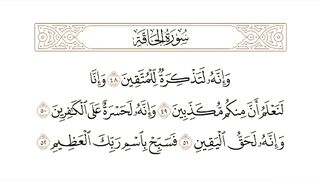 سُورَةُ الحَاقَّةِ
وَإِنَّهُۥ لَتَذْكِرَةٌ لِّلْمُتَّقِينَ ٤٨ وَإِنَّا
لَنَعْلَمُ أَنَّ مِنكُم مُّكَذِّبِينَ ٤٩ وَإِنَّهُۥ لَحَسْرَةٌ عَلَى ٱلْكَٰفِرِينَ ٥٠
وَإِنَّهُۥ لَحَقُّ ٱلْيَقِينِ ٥١ فَسَبِّحْ بِٱسْمِ رَبِّكَ ٱلْعَظِيمِ ٥٢